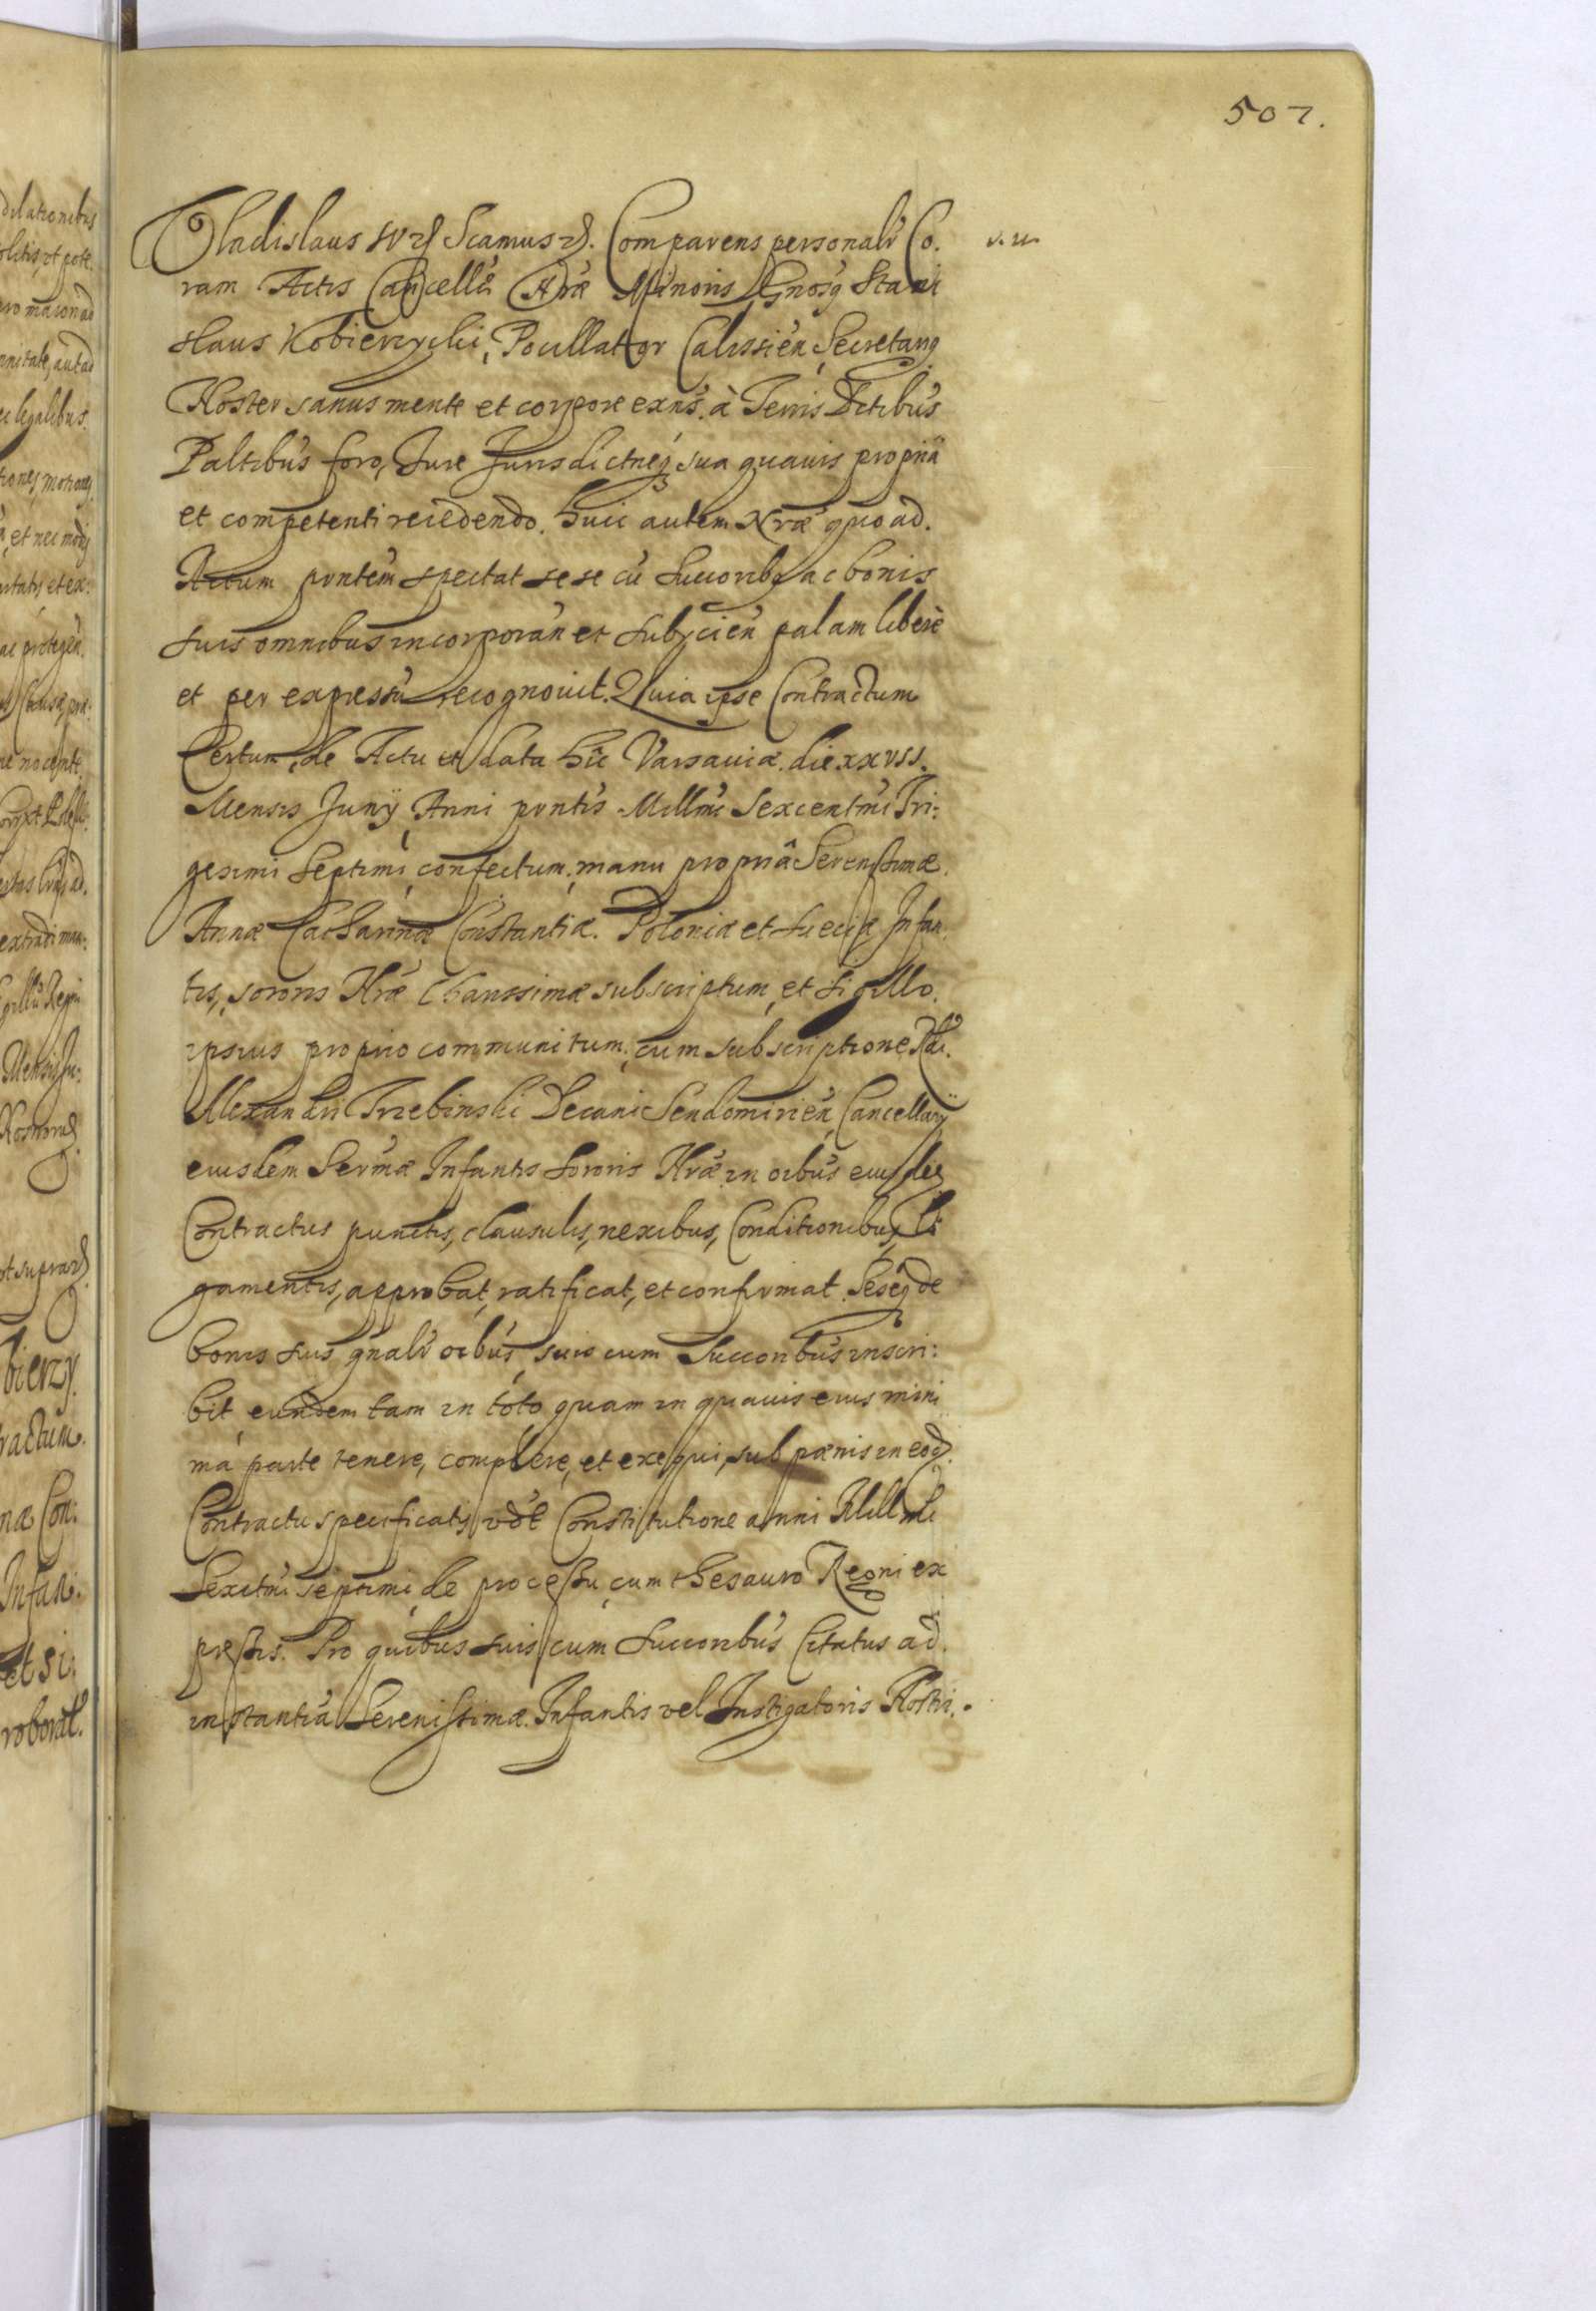 507.
Vladislaus IV etc. Scamus etc. Comparens personalr Co.
v. u.
ram Actis Cancellr Nræ Minoris Gnosq Stani
slaus Kobierzycki, Pocillator Calissien Secretariq
Noster sanus mente et corpore exns. à Terris Dctibus
Paltibus foro, Jure Jurisdictneq sua quauis propria
et competenti recedendo. huic autem Nræ quoad.
Actum pntem spectat sese cu Succorib ac bonis
suis omnibus incorporan et subijcien palam liberè
et per expressu recognouit. Quia ipse Contractum
Certum, de Actu et data hic Varsauiæ. die xxvss.
Mensis Junij Anni pntis Millmi Sexcentmi Tri:
gesimi Septimi confectum, manu propriâ Serenissimæ.
Annæ Catharinæ Constantiæ. Poloniæ et Sueciæ Infan.
tis, sororis Nræ Charissimæ subscriptum et sigillo.
ipsius proprio communitum, cum subscriptione Rdi.
Alexandri Trzebinski Decani Sendomirien Cancellarij
eiusdem Sermæ Infantis Sororis Nræ in oibus eiusdem
Contractus punctis, clausulis, nexibus, Conditionibus, Li
gamentis, approbat, ratificat, et confirmat. Seseq de
bonis suis gnalr oibus suis cum Succoribus inscri:
bit eundem tam in toto quam in quauis eius mini
ma parte tenere, complere, et exequi, sub pænis in eod.
Contractu specificatis vdt Constitutione anni Millmi
Sexctmi septimi de processu cum thesauro Regni ex
pressis. Pro quibus suis cum Succoribus Citatus ad.
instantia Serenissimæ. Infantis vel Instigatoris Nostri.